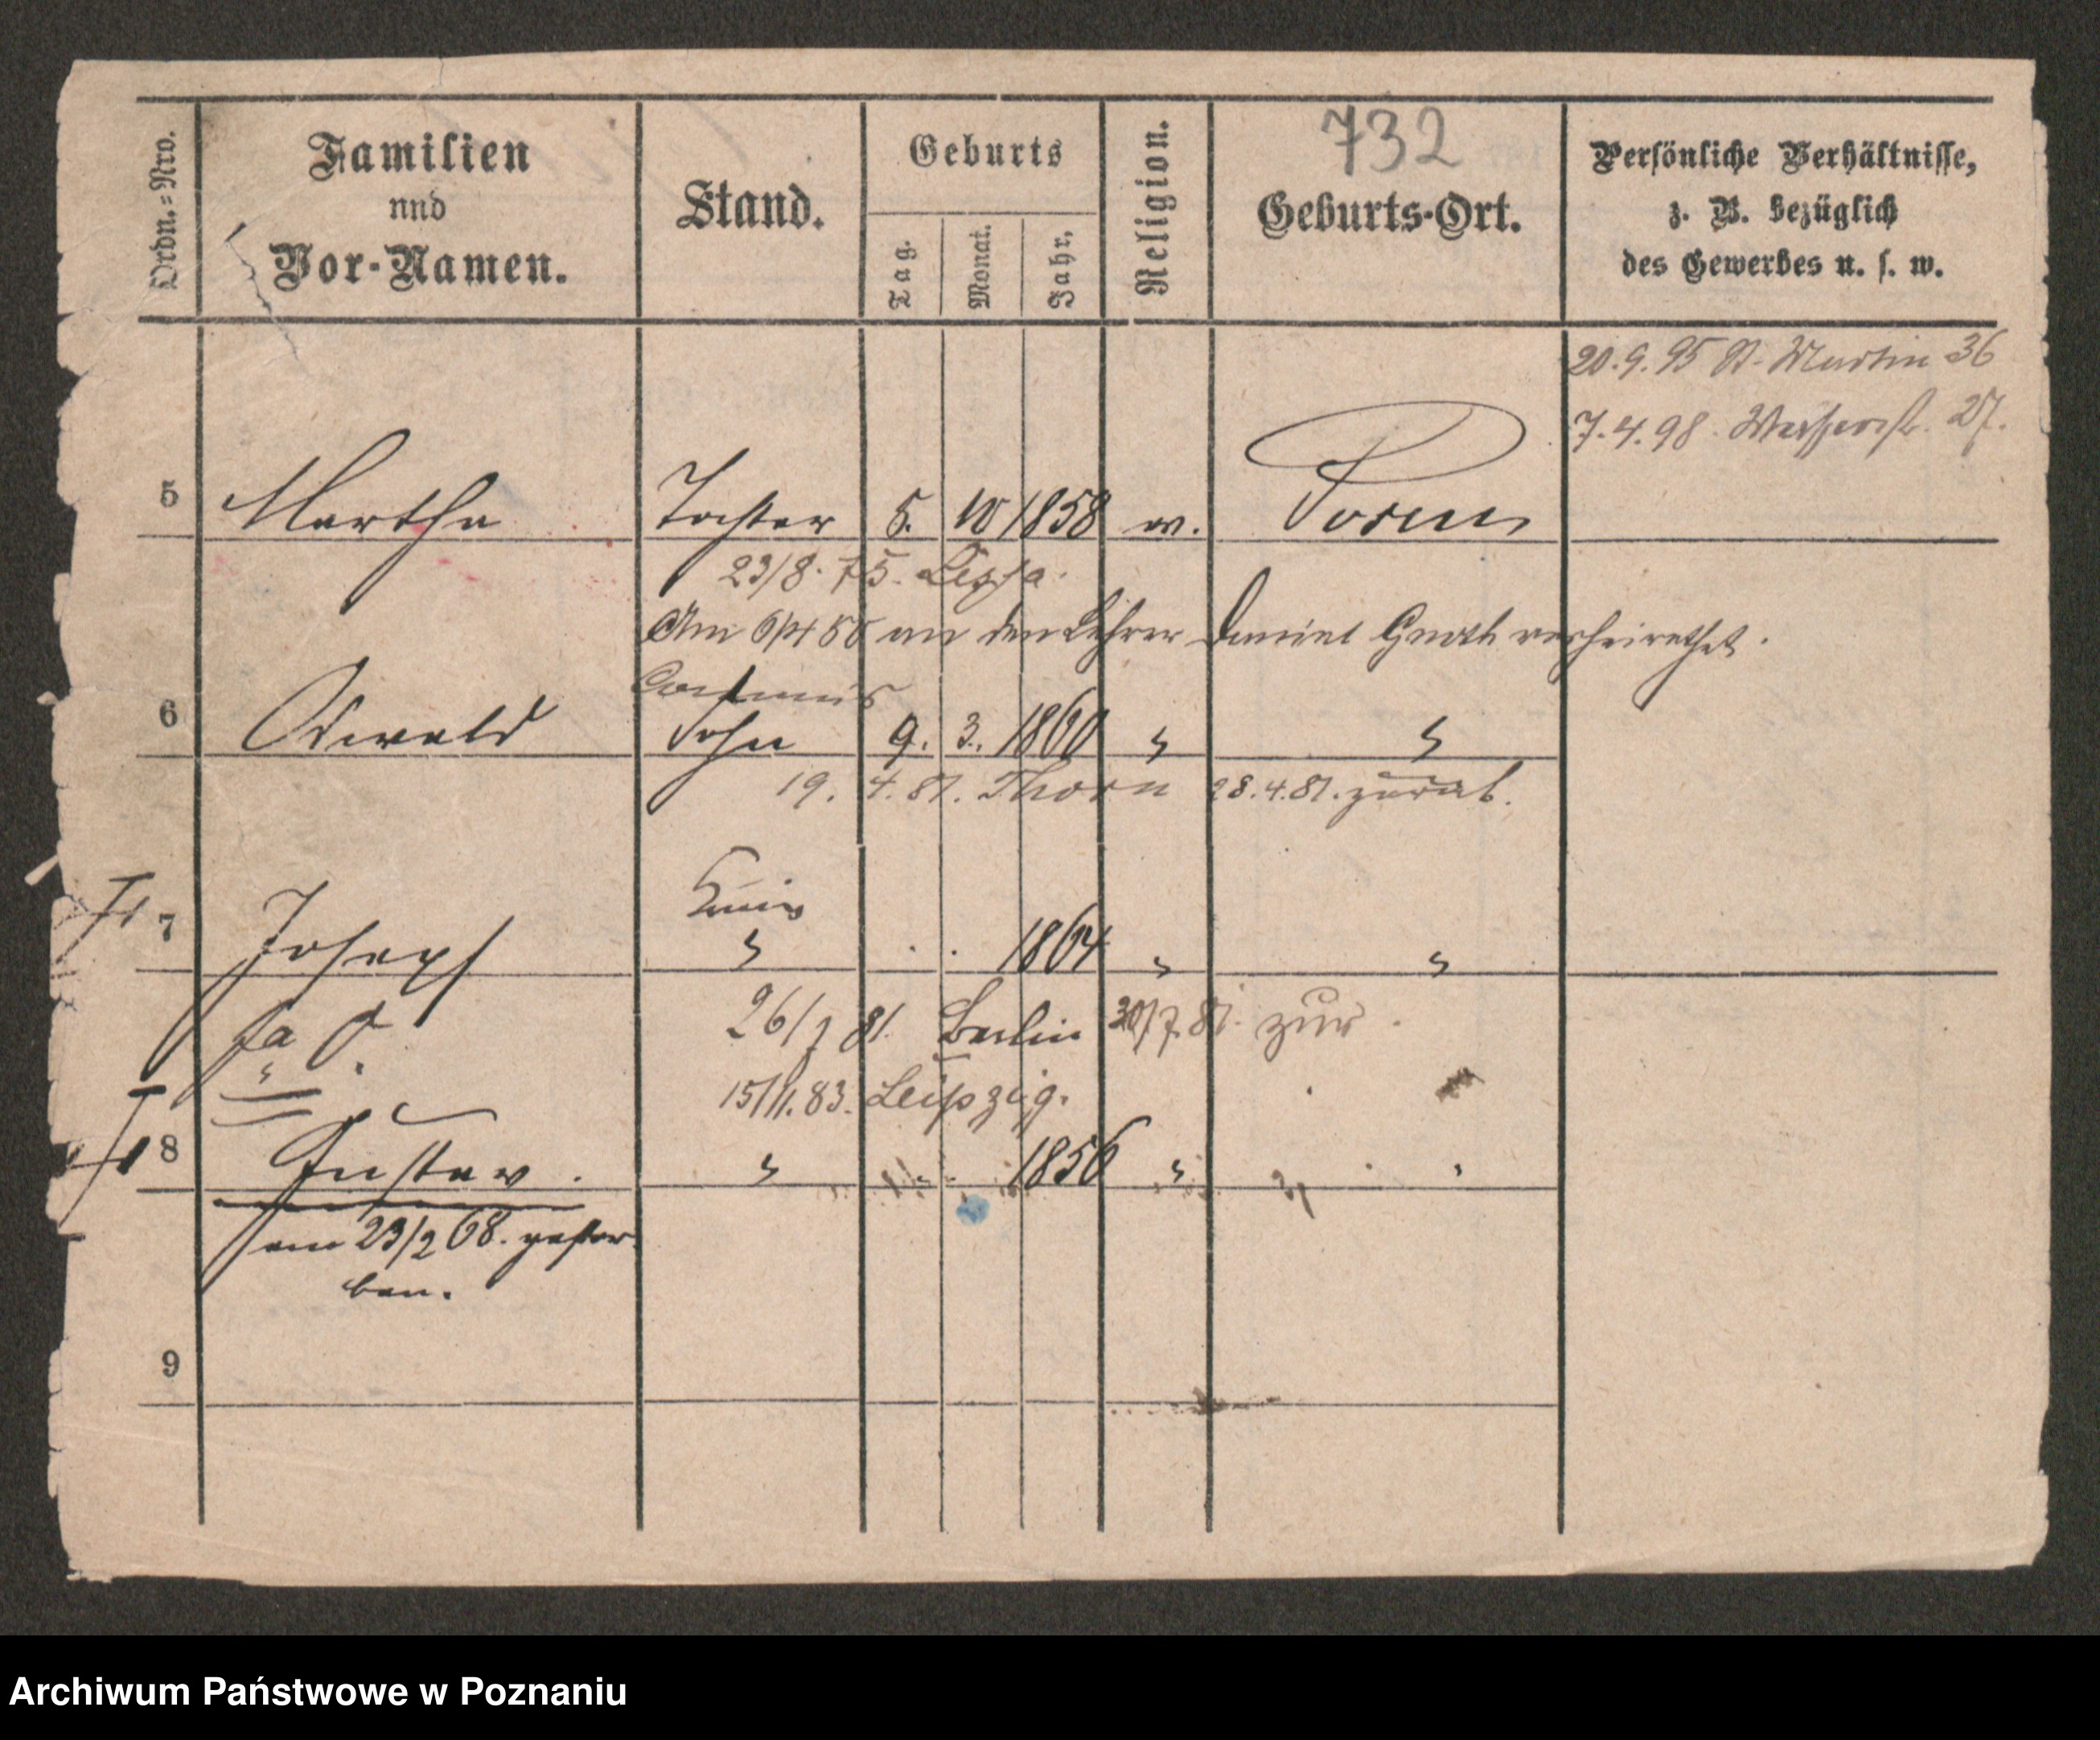 732
Ordn.=Nro.
Familien
und
Vor-Namen.
Stand.
Geburts
Tag.
Monat.
Jahr.
Religion.
Geburts-Ort.
Persönliche Verhältnisse,
z. B. bezüglich
des Gewerbes u. s. w.
20.9.95 St. Martin 36
7.4.98. Wasserstr. 27.
5 Martha Tochter 5. 10 1858 ev. Posen
23/8. 75. Lissa.
Am 6/4 80 an den Lehrer Daniel Gnoth verheirathet.
6 Oswald Sohn 9. 3. 1860 " "
19. 4. 81. Thorn 28.4.81. zurück.
7 Joseph " 1864 " "
26/7 81. Berlin 30/7. 81. zur.
15/11. 83. Leipzig.
8 Gustav. " 1856 " "
am 23/2 68. gestor
ben.
9
Archiwum Państwowe w Poznaniu